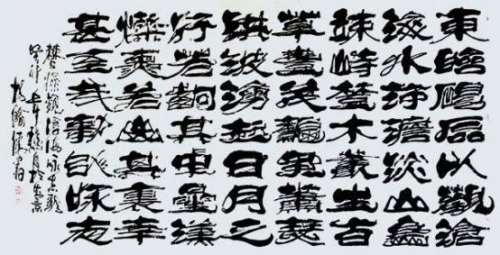 東臨碣石以觀滄
海水何澹澹山島
竦峙樹木叢生百
草豐茂秋風蕭瑟
洪波湧起日月之
行若出其中星漢
燦爛若出其裏幸
甚至哉歌以詠志
曹操觀滄海